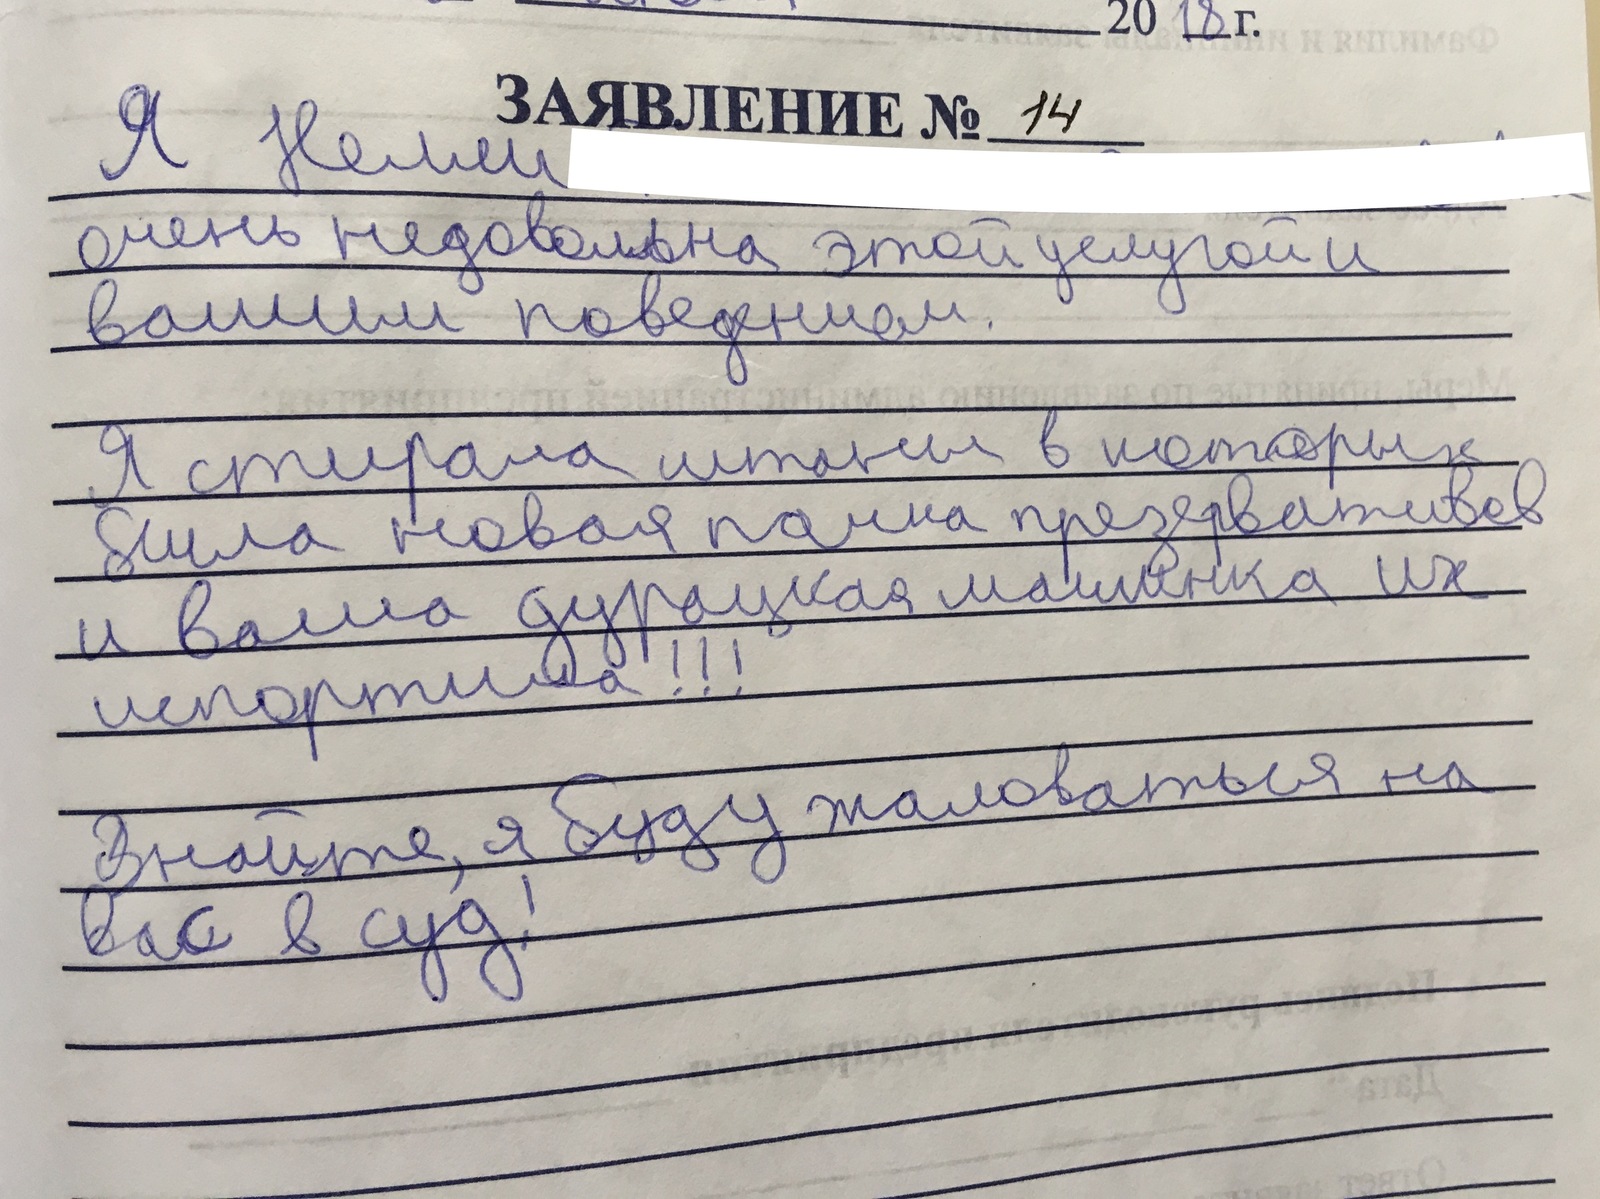 20 18 г.
ЗАЯВЛЕНИЕ № 14
Я Нелли
очень недовольна этой услугой и
вашим поведением.
Я стирала штаны в которых
была новая пачка презервативов
и ваша дурацкая машинка их
испортила!!!
Знайте, я буду жаловаться на
вас в суд!